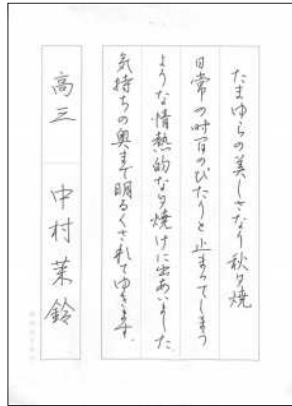 たまゆらの美しさなり秋夕焼
日常の時間のぴたりと止まってしまう
ような情熱的な夕焼けに出あいました。
気持ちの奥まで明るくされてゆきます。
高三 中村茉鈴